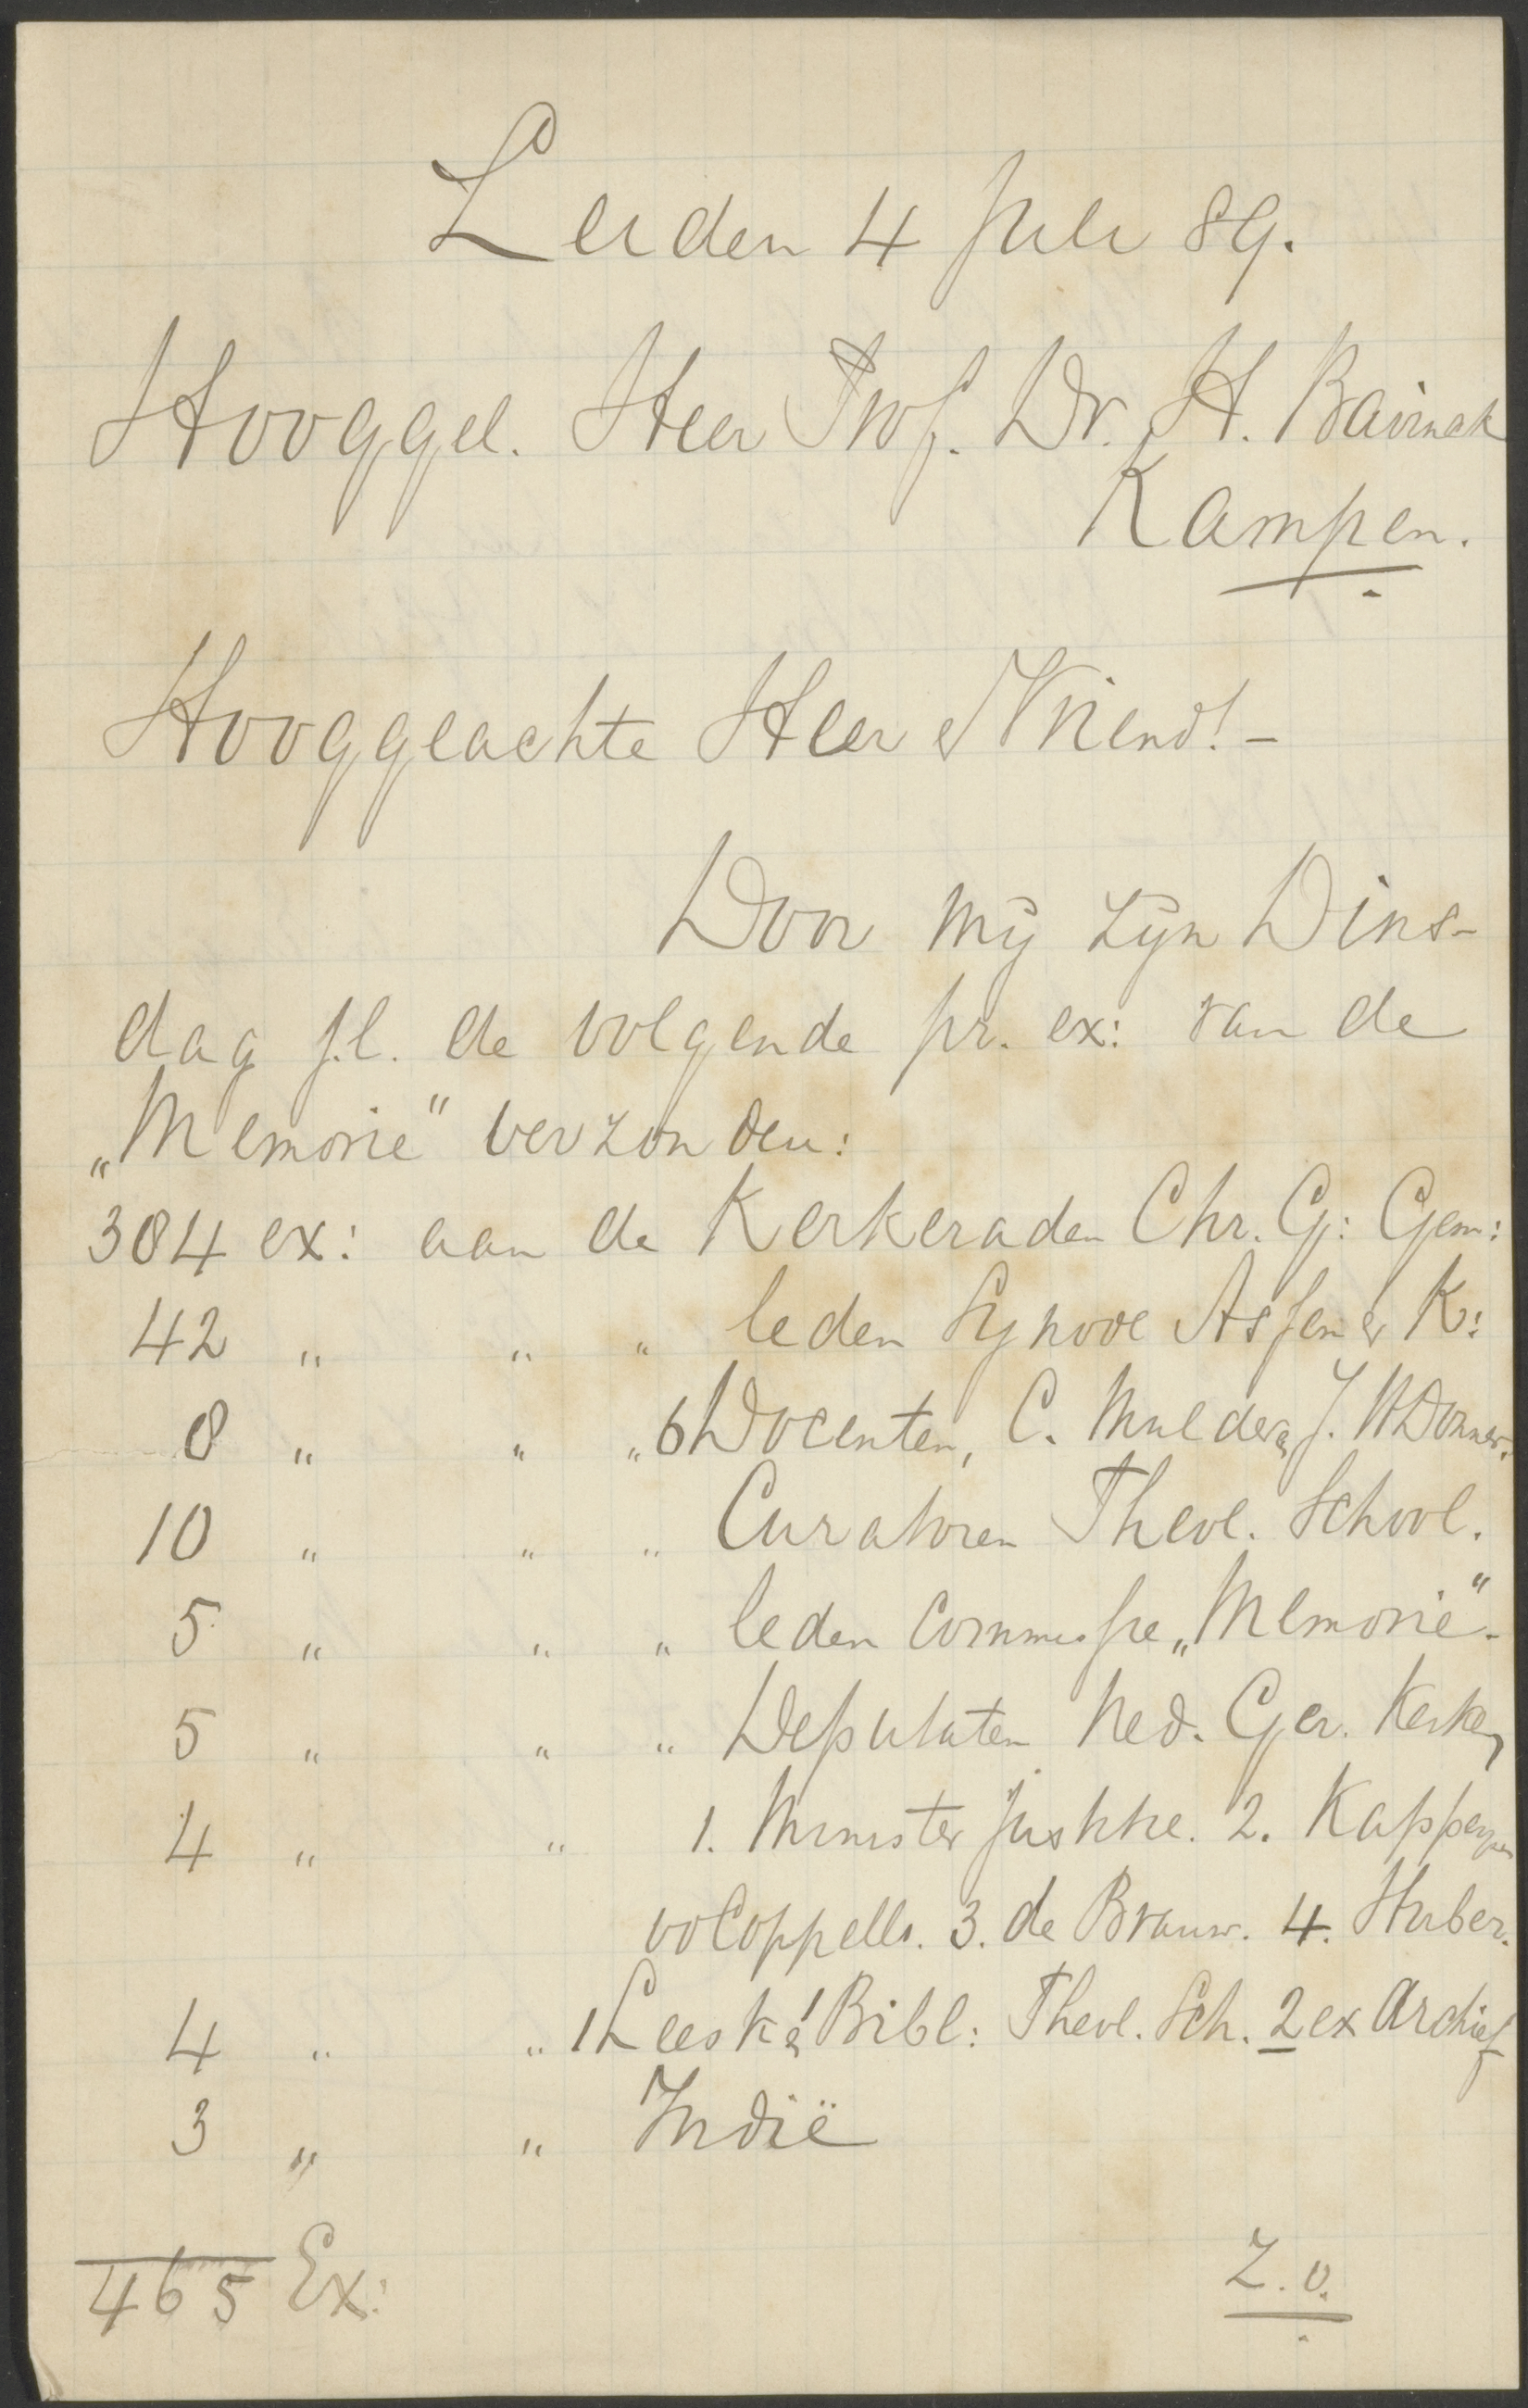 Leiden 4 Juli 89.
Hooggel. Heer Prof. Dr. H. Bavinck
Kampen.
Hooggeachte Heer & Vriend! -
Door mij zijn Dins-
dag j.l. de volgende pr. ex: van de
„Memorie" verzonden:
384 ex: aan de Kerkeraden Chr. G: Gem:
42 " " " leden Synode Assen & K:
8 " " " 6 Docenten, C. Mulder & J. H Donner.
10 " " " Curatoren Theol. School.
5 " " " leden Commissie „Memorie".
5 " " " Deputaten Ned. Ger. Kerken
4 " " 1. Minister Justitie. 2. Kappeyne
vd Coppello. 3. de Brauw. 4. Huber.
4 " " 1 Leesk & 1 Bibl: Theol. Sch. 2 ex Archief
3 " " Indië
465 Ex:
Z.O.